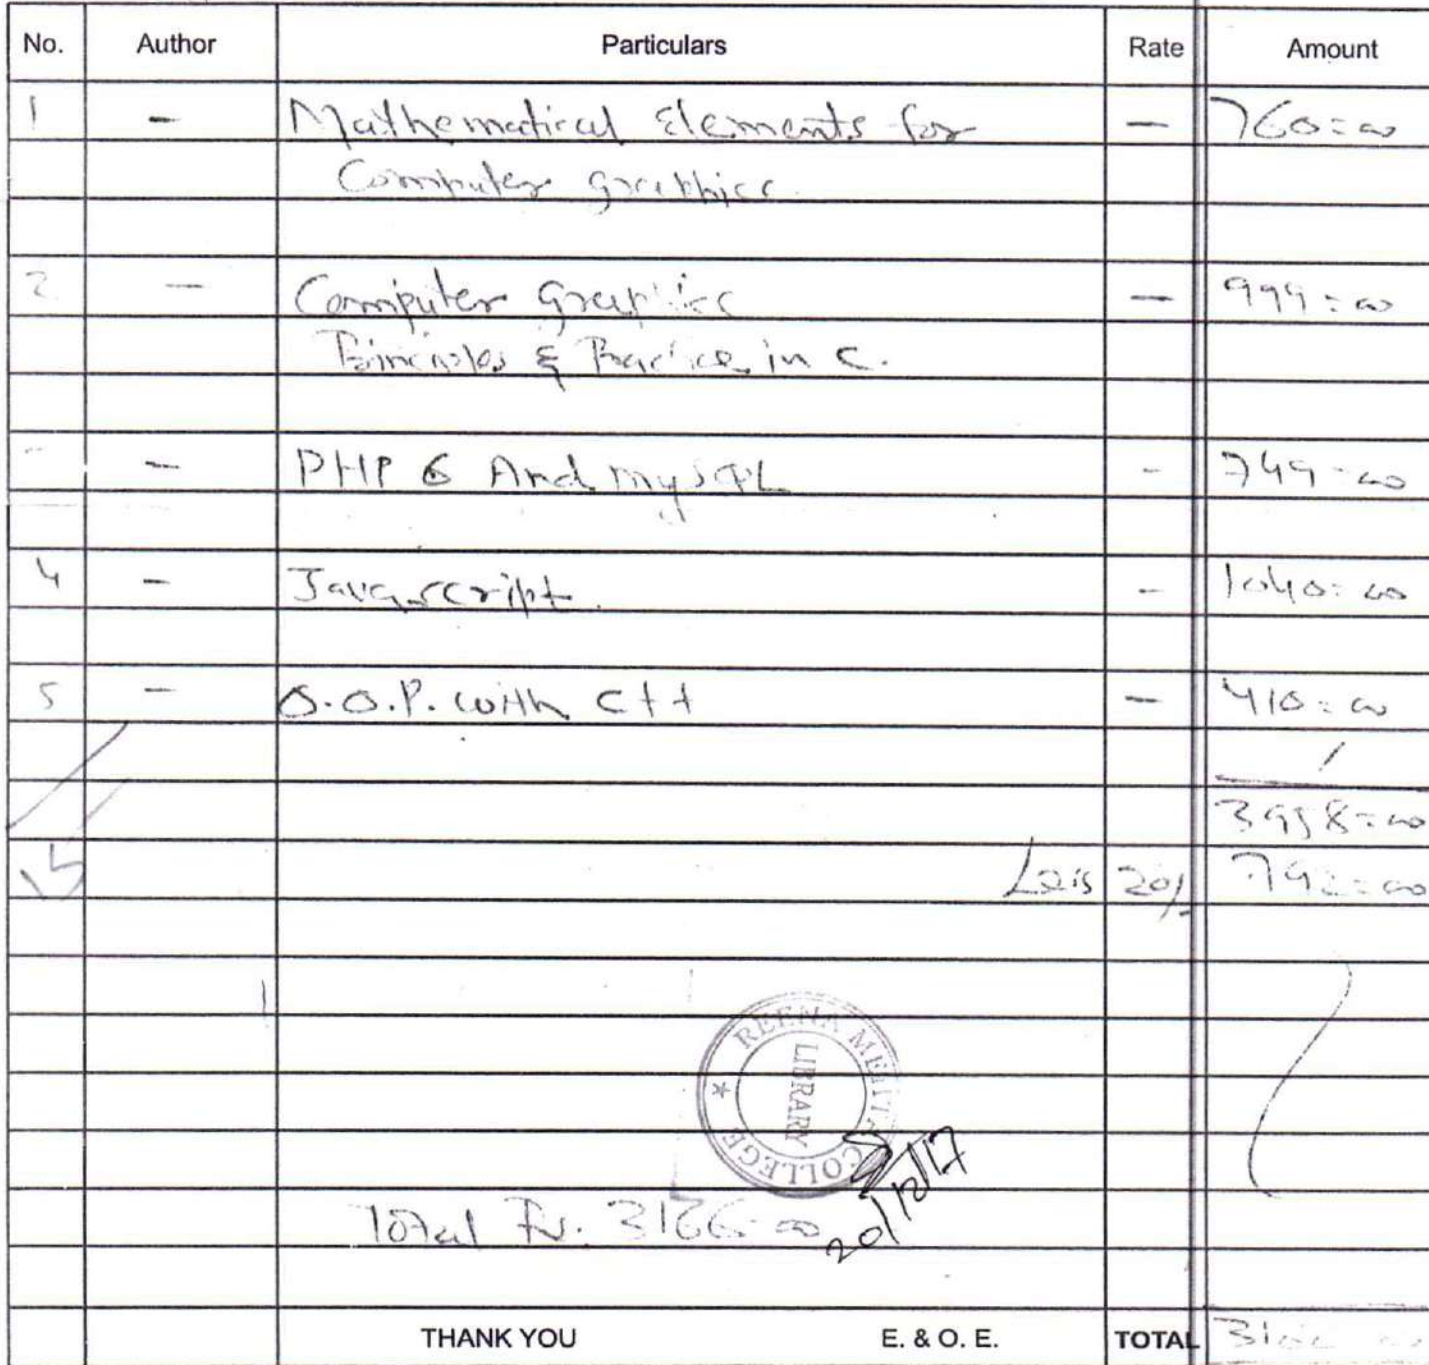 No. Author Particulars Rate Amount
1 - Mathematical Elements for - 760=00
Computer graphics.
2 - Computer Graphics - 999=00
Principles & Practice in C.
- PHP 6 And MySQL - 749=00
4 - Javascript. - 1040=00
5 - O.O.P. with C++ - 410=00
3958=00
Less 20% 792=00
REENA MEHTA COLLEGE
LIBRARY
20/12/17
Total Rs. 3166=00
THANK YOU E. & O. E. TOTAL 3166=00